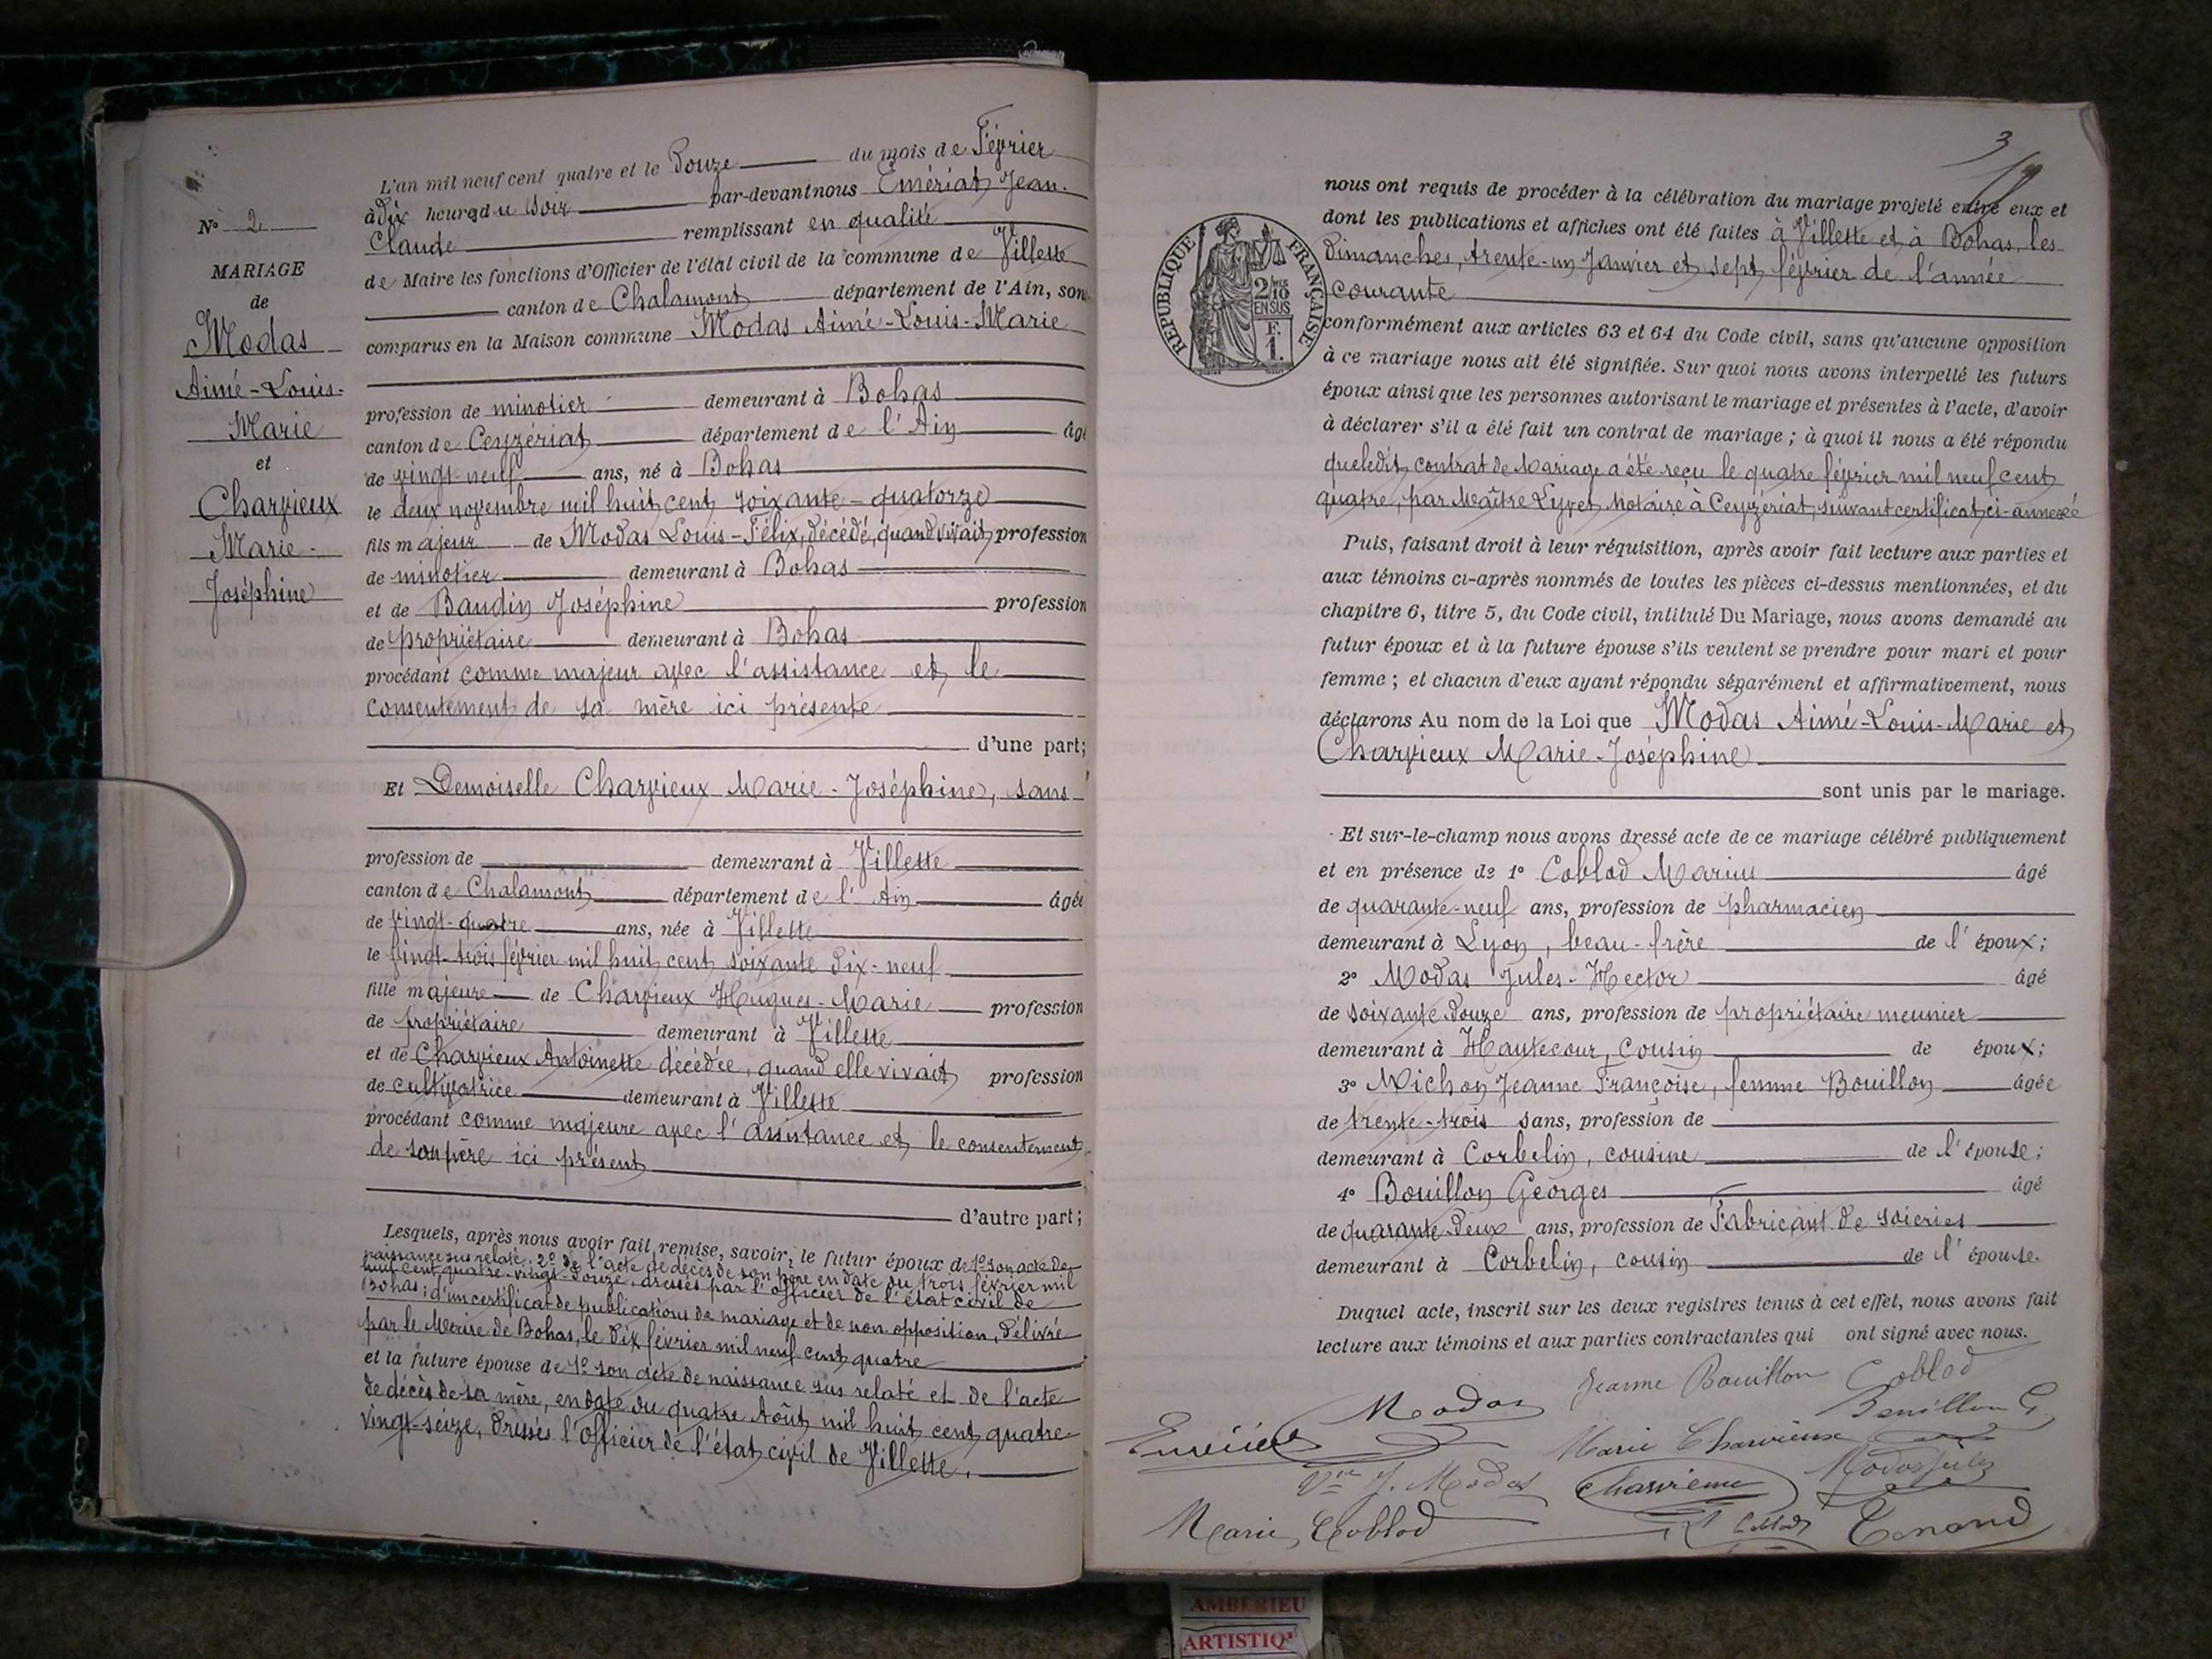 N° 2
MARIAGE
de
Modas
Aimé-Louis-
Marie
et
Charvieux
Marie-
Joséphine
L'an mil neuf cent quatre et le Douze du mois de Février
à Dix heures du soir par-devant nous Emériat Jean-
Claude remplissant en qualité
de Maire les fonctions d'Officier de l'état civil de la commune de Villette
canton de Chalamont département de l'Ain, son
comparus en la Maison commune Modas Aimé-Louis-Marie
profession de minotier demeurant à Bohas
canton de Ceyzériat département de l'Ain âgé
de vingt-neuf ans, né à Bohas
le deux novembre mil huit cent soixante-quatorze
fils majeur de Modas Louis-Félix, décédé, quand vivait profession
de minotier demeurant à Bohas
et de Baudin Joséphine profession
de propriétaire demeurant à Bohas
procédant comme majeur avec l'assistance et le
consentement de sa mère ici présente
d'une part;
Et Demoiselle Charvieux Marie-Joséphine, sans
profession de demeurant à Villette
canton de Chalamont département de l'Ain âgée
de vingt-quatre ans, née à Villette
le vingt-trois février mil huit cent soixante dix-neuf
fille majeure de Charvieux Hugues-Marie profession
de propriétaire demeurant à Villette
et de Charvieux Antoinette décédée, quand elle vivait profession
de cultivatrice demeurant à Villette
procédant comme majeure avec l'assistance et le consentement
de son père ici présent
d'autre part;
Lesquels, après nous avoir fait remise, savoir; le futur époux de 1° son acte de
naissance sus relaté; 2° de l'acte de décès de son père en date du trois février mil
huit cent quatre-vingt-douze, dressés par l'officier de l'état civil de
Bohas; d'un certificat de publications de mariage et de non opposition, délivré
par le Maire de Bohas, le dix février mil neuf cent quatre
et la future épouse de 1° son acte de naissance sus relaté et de l'acte
de décès de sa mère, en date du quatre Août mil huit cent quatre-
vingt-seize, Dressés l'officier de l'état civil de Villette.
3
nous ont requis de procéder à la célébration du mariage projeté entre eux et
dont les publications et affiches ont été faites à Villette et à Bohas, les
Dimanches, trente-un Janvier et sept février de l'année
courante
REPUBLIQUE FRANÇAISE
2/10 EN SUS
F. 1.
conformément aux articles 63 et 64 du Code civil, sans qu'aucune opposition
à ce mariage nous ait été signifiée. Sur quoi nous avons interpellé les futurs
époux ainsi que les personnes autorisant le mariage et présentes à l'acte, d'avoir
à déclarer s'il a été fait un contrat de mariage; à quoi il nous a été répondu
que ledit contrat de Mariage a été reçu le quatre février mil neuf cent
quatre, par Maître Lyvet, Notaire à Ceyzériat, suivant certificat ci-annexé
Puis, faisant droit à leur réquisition, après avoir fait lecture aux parties et
aux témoins ci-après nommés de toutes les pièces ci-dessus mentionnées, et du
chapitre 6, titre 5, du Code civil, intitulé Du Mariage, nous avons demandé au
futur époux et à la future épouse s'ils veulent se prendre pour mari et pour
femme; et chacun d'eux ayant répondu séparément et affirmativement, nous
déclarons Au nom de la Loi que Modas Aimé-Louis-Marie et
Charvieux Marie-Joséphine
sont unis par le mariage.
Et sur-le-champ nous avons dressé acte de ce mariage célébré publiquement
et en présence de 1° Coblod Marius âgé
de quarante-neuf ans, profession de pharmacien
demeurant à Lyon, beau-frère de l'époux;
2° Modas Jules-Hector âgé
de soixante douze ans, profession de propriétaire meunier
demeurant à Hautecour, cousin de époux;
3° Michon Jeanne Françoise, femme Bouillon âgée
de trente-trois sans, profession de
demeurant à Corbelin, cousine de l'épouse;
4° Bouillon Georges âgé
de quarante-deux ans, profession de Fabricant de soieries
demeurant à Corbelin, cousin de l'épouse.
Duquel acte, inscrit sur les deux registres tenus à cet effet, nous avons fait
lecture aux témoins et aux parties contractantes qui ont signé avec nous.
Jeanne Bouillon Coblod
Modas Bouillon G.
Emériat Marie Charvieux
Vve J. Modas Charvieux Modas Jules
Marie Coblod Tenand
AMBERIEU
ARTISTIQ